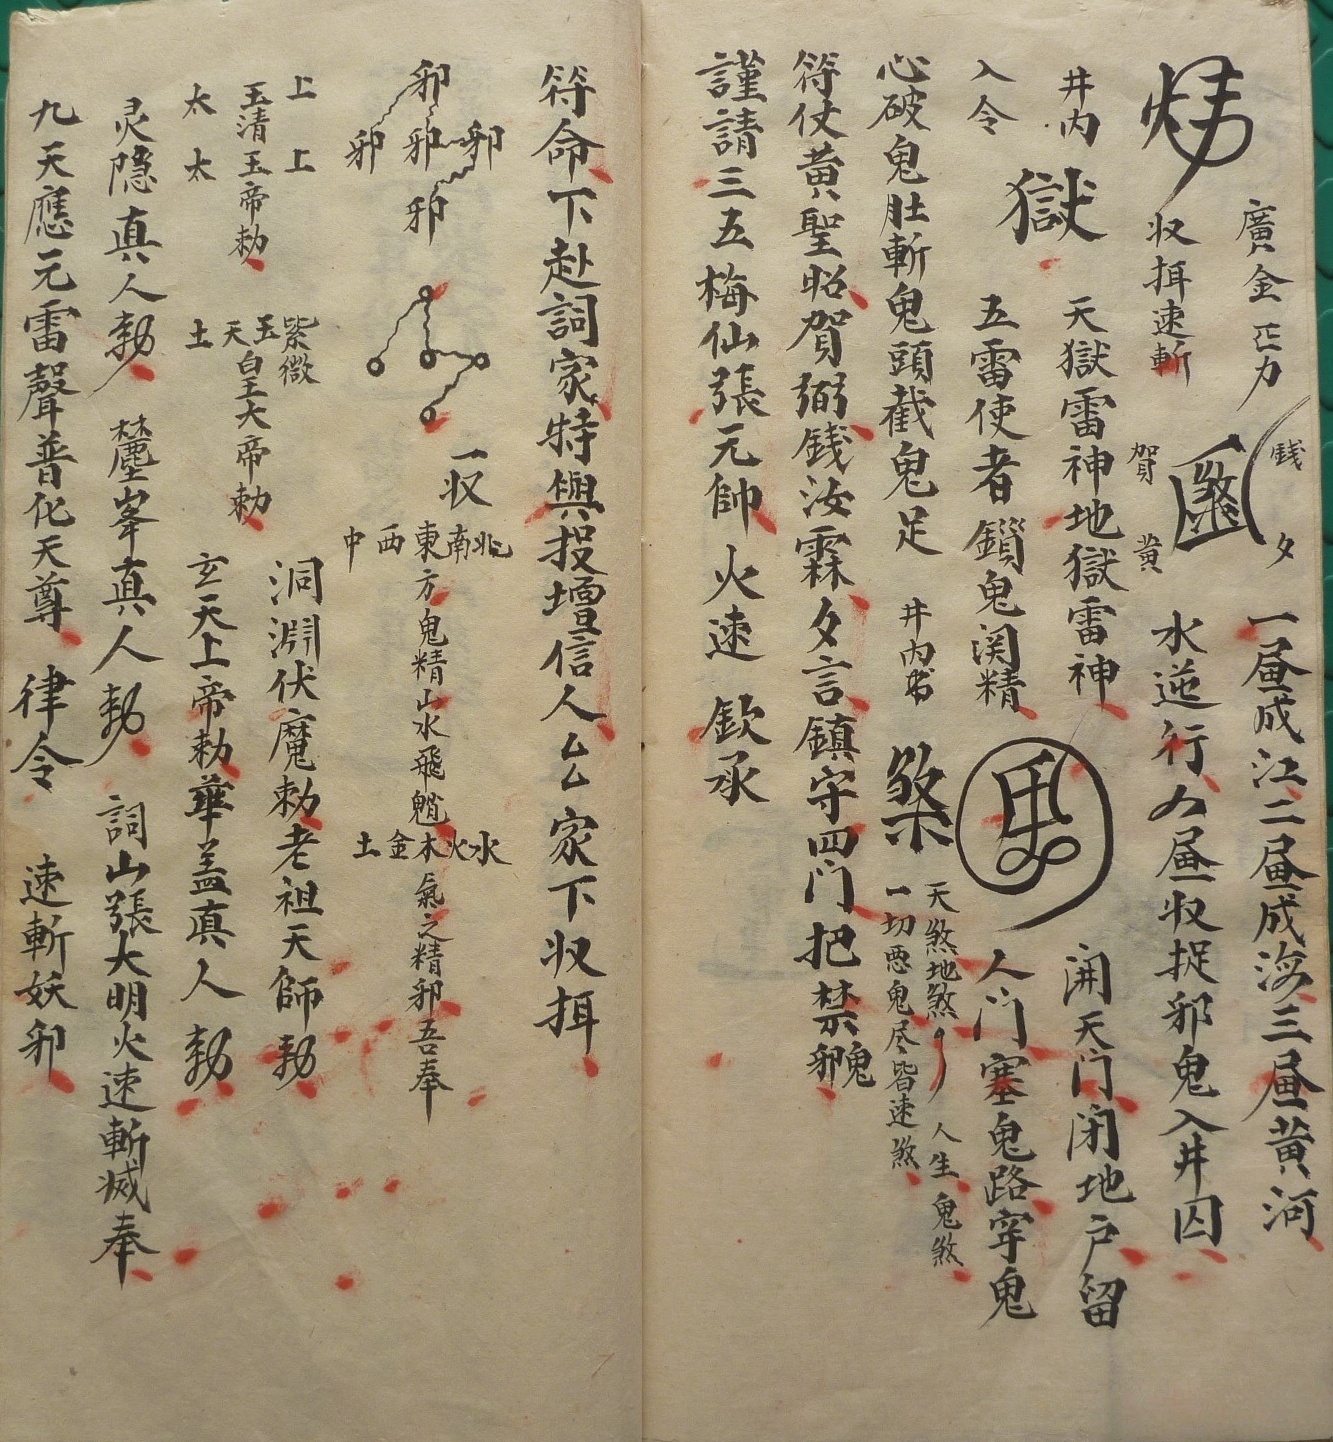 廣金 力 一𡱈成江二𡱈成海三𡱈黄河
收拜速斬 賀 錢 黄 夕 水逆行 𡱈收捉邪鬼入井囚
井内 獄 天獄雷神地獄雷神 開天门闭地户留
入令 五雷使者鎖鬼関精 人门塞鬼路牢鬼
心破鬼肚斬鬼頭截鬼足 井内书 天煞地煞 人生鬼煞
一切恶鬼尽皆速煞
符仗黄聖昭賀弼錢汝霖夕言鎮守四门把禁邪鬼
謹請三五梅仙張元帥火速 欽承
符命下赴詞家特與投壇信人厶厶家下收
邪 邪 邪 邪 邪
一收 北南東西中 方鬼精山水飛魈 水火木金土 氣之精邪吾奉
上上 紫微 洞淵伏魔勅老祖天師勅
玉清玉帝勅 玉 天皇大帝勅
太太 土 玄天上帝勅華盖真人勅
灵隐真人勅 峯真人勅 詞山張大明火速斬滅奉
九天應元雷聲普化天尊 律令 速斬妖邪